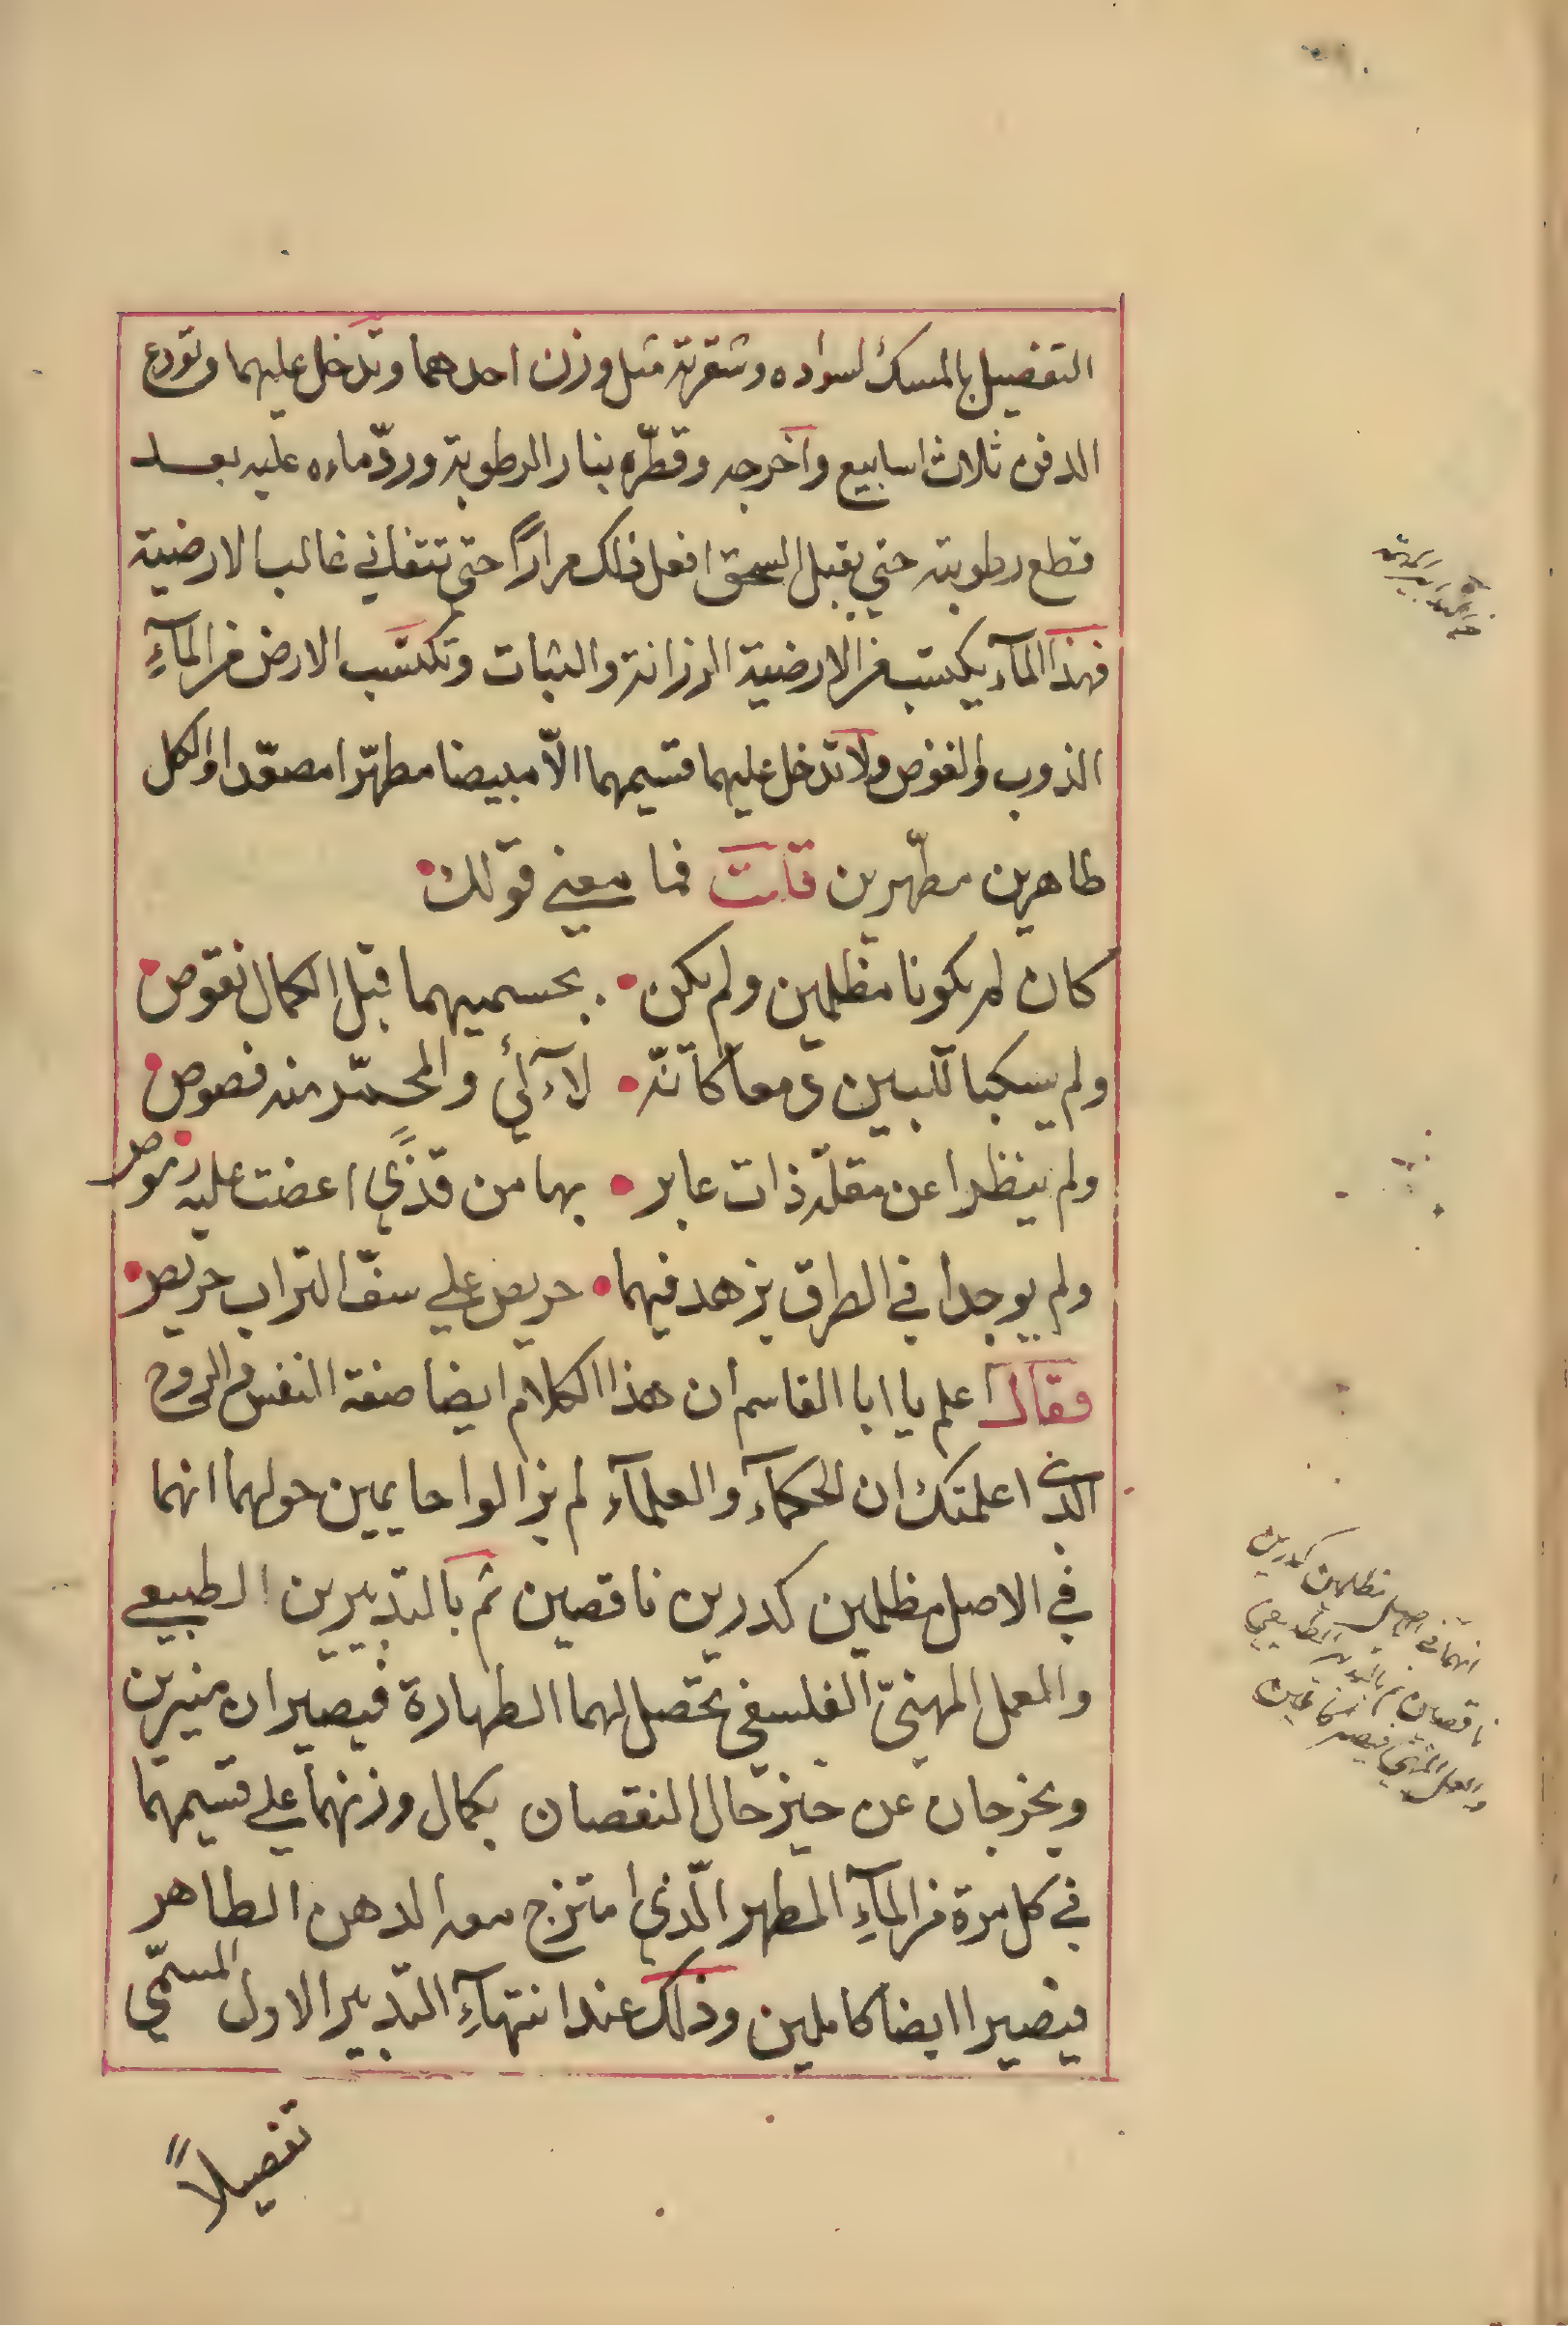 التفصيل بالمسك لسواده وشقرته مثل وزن احدهما وتدخل عليهما وتودع
الدفن ثلاث اسابيع واخرجه وقطّره بنار الرطوبة وردّ ماءه عليه بعد
قطع رطوبته حتي يقبل السحق افعل ذلك مراراً حتي تتفاني غالب الارضية
فهذا المآء يكتسب من الارضية الرزانة والثبات وتكتسب الارض من المآءِ
الذوب والغوص ولا تدخل عليهما قسيمهما الاّ مبيضا مطهّرا مصعّدا والكل
طاهرين مطهّرين قلت فما معني قولك
كان لم يكونا مظلمين ولم يكن بجسميهما قبل الكمال نقوص
ولم يسكبا للبين معا كانّه لآءلئ والمحمّر منه فصوص
ولم ينظرا عن مقلة ذات عابر بها من قذًي اعضت عليه رموص
ولم يوجدا في الطرق يزهد فيهما حريص علي سفّ التراب حريص
فقال اعلم يا ابا القاسم ان هذا الكلام ايضا صفة النفس والروح
الذي اعلمتك ان الحكمآء والعلمآء لم يزالوا حايمين حولهما انهما
في الاصل مظلمين كدرين ناقصين ثم بالتدبيرين الطبيعي
والمعمل المهنيّ الفلسفي تحصل لهما الطهارة فيصيران منيرين
ويخرجان عن حيز حال النقصان بكمال وزنهما علي قسيمهما
في كل مرة من المآءِ المطهر الّذي امتزج معه الدهن الطاهر
فيصيرا ايضا كاملين وذلك عند انتهآءِ التدبير الاول المسمّي
تفصيلاً
انهما في الاصل مظلمين كدرين
ناقصين ثم بالتدبير الطبيعي
والعمل المهني فيصير كاملين